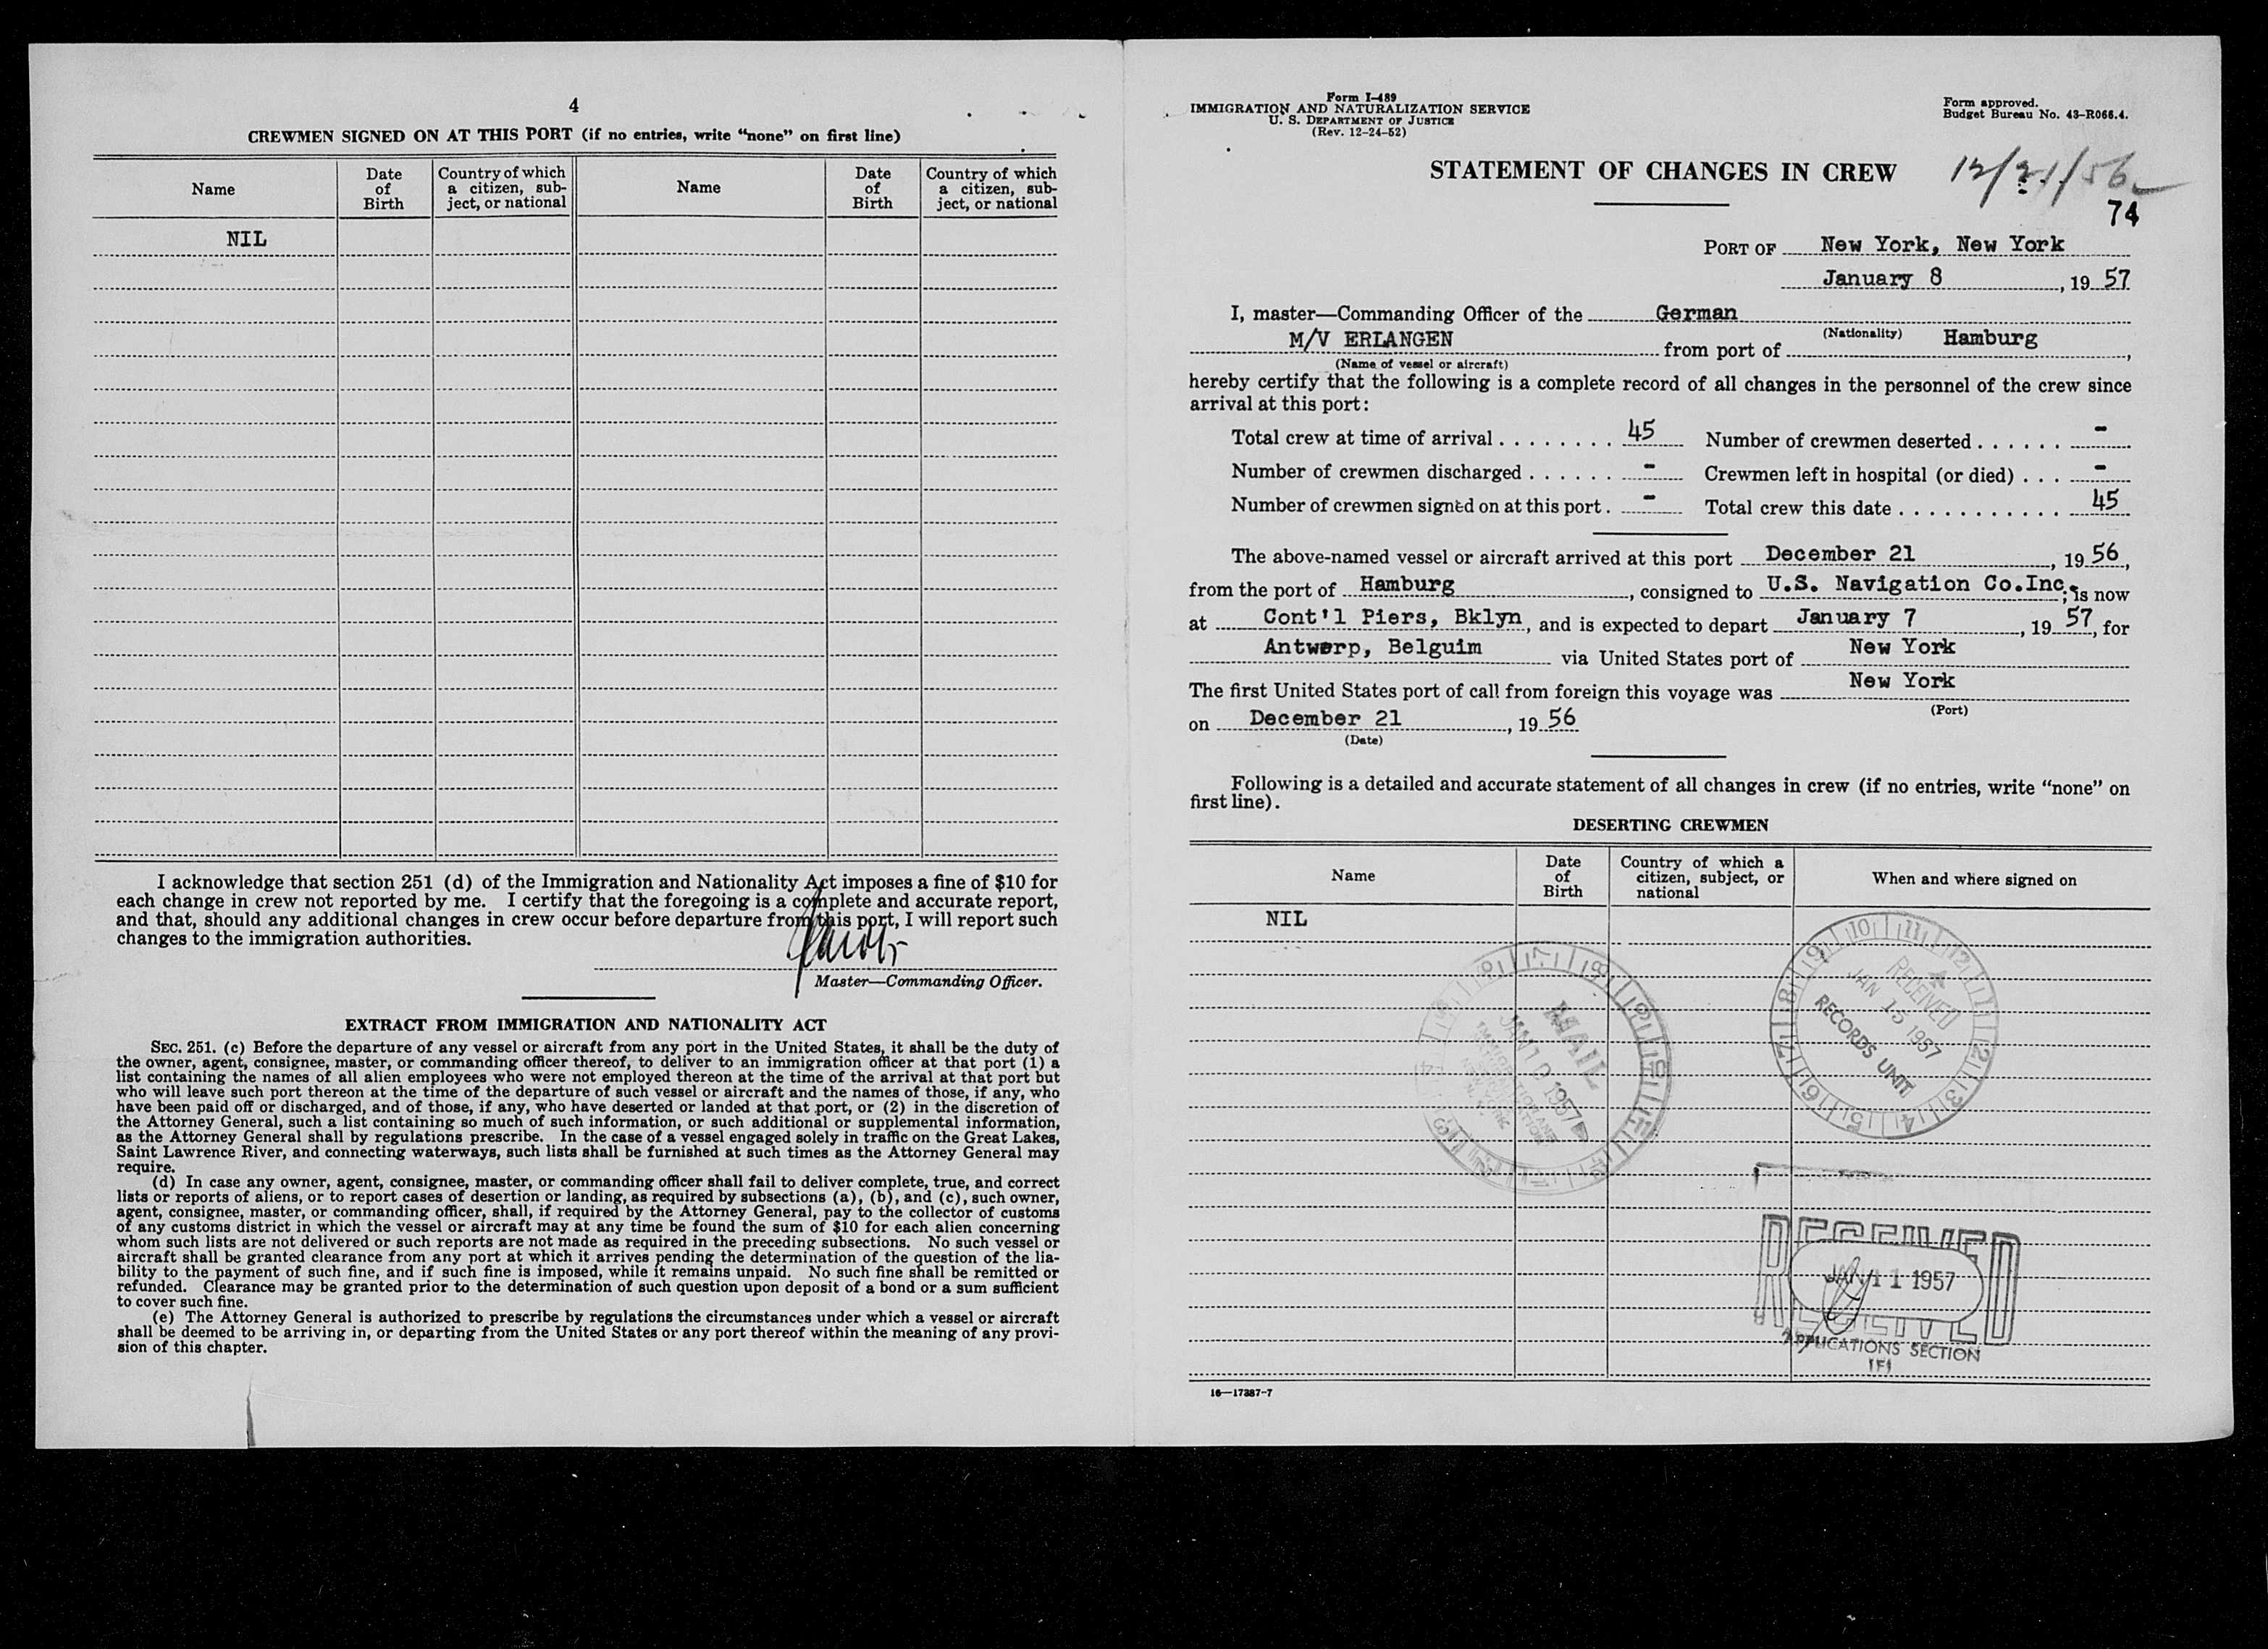 4
CREWMEN SIGNED ON AT THIS PORT (if no entries, write “none” on first line)
Name
Date of Birth
Country of which a citizen, sub-ject, or national
Name
Date of Birth
Country of which a citizen, sub-ject, or national
NIL
I acknowledge that section 251 (d) of the Immigration and Nationality Act imposes a fine of $10 for
each change in crew not reported by me. I certify that the foregoing is a complete and accurate report,
and that, should any additional changes in crew occur before departure from this port, I will report such
changes to the immigration authorities.
Master—Commanding Officer.
EXTRACT FROM IMMIGRATION AND NATIONALITY ACT
SEC. 251. (c) Before the departure of any vessel or aircraft from any port in the United States, it shall be the duty of
the owner, agent, consignee, master, or commanding officer thereof, to deliver to an immigration officer at that port (1) a
list containing the names of all alien employees who were not employed thereon at the time of the arrival at that port but
who will leave such port thereon at the time of the departure of such vessel or aircraft and the names of those, if any, who
have been paid off or discharged, and of those, if any, who have deserted or landed at that port, or (2) in the discretion of
the Attorney General, such a list containing so much of such information, or such additional or supplemental information,
as the Attorney General shall by regulations prescribe. In the case of a vessel engaged solely in traffic on the Great Lakes,
Saint Lawrence River, and connecting waterways, such lists shall be furnished at such times as the Attorney General may
require.
(d) In case any owner, agent, consignee, master, or commanding officer shall fail to deliver complete, true, and correct
lists or reports of aliens, or to report cases of desertion or landing, as required by subsections (a), (b), and (c), such owner,
agent, consignee, master, or commanding officer, shall, if required by the Attorney General, pay to the collector of customs
of any customs district in which the vessel or aircraft may at any time be found the sum of $10 for each alien concerning
whom such lists are not delivered or such reports are not made as required in the preceding subsections. No such vessel or
aircraft shall be granted clearance from any port at which it arrives pending the determination of the question of the lia-
bility to the payment of such fine, and if such fine is imposed, while it remains unpaid. No such fine shall be remitted or
refunded. Clearance may be granted prior to the determination of such question upon deposit of a bond or a sum sufficient
to cover such fine.
(e) The Attorney General is authorized to prescribe by regulations the circumstances under which a vessel or aircraft
shall be deemed to be arriving in, or departing from the United States or any port thereof within the meaning of any provi-
sion of this chapter.
Form I-489
IMMIGRATION AND NATURALIZATION SERVICE
U. S. DEPARTMENT OF JUSTICE
(Rev. 12-24-52)
Form approved.
Budget Bureau No. 43-R066.4.
STATEMENT OF CHANGES IN CREW
12/21/56
74
PORT OF New York, New York
January 8, 19 57
I, master—Commanding Officer of the German
(Nationality)
M/V ERLANGEN from port of Hamburg,
(Name of vessel or aircraft)
hereby certify that the following is a complete record of all changes in the personnel of the crew since
arrival at this port:
Total crew at time of arrival . . . . . . . . 45 Number of crewmen deserted . . . . . . -
Number of crewmen discharged . . . . . . - Crewmen left in hospital (or died) . . . -
Number of crewmen signed on at this port . - Total crew this date . . . . . . . . . . . . 45
The above-named vessel or aircraft arrived at this port December 21, 19 56,
from the port of Hamburg, consigned to U.S. Navigation Co.Inc.; is now
at Cont'l Piers, Bklyn, and is expected to depart January 7, 19 57, for
Antwerp, Belguim via United States port of New York
The first United States port of call from foreign this voyage was New York
(Port)
on December 21, 19 56
(Date)
Following is a detailed and accurate statement of all changes in crew (if no entries, write “none” on
first line).
DESERTING CREWMEN
Name
Date of Birth
Country of which a citizen, subject, or national
When and where signed on
NIL
MAIL
JAN 10 1957
RECEIVED
JAN 15 1957
RECORDS UNIT
RECEIVED
JAN 11 1957
APPLICATIONS SECTION
16—17387-7